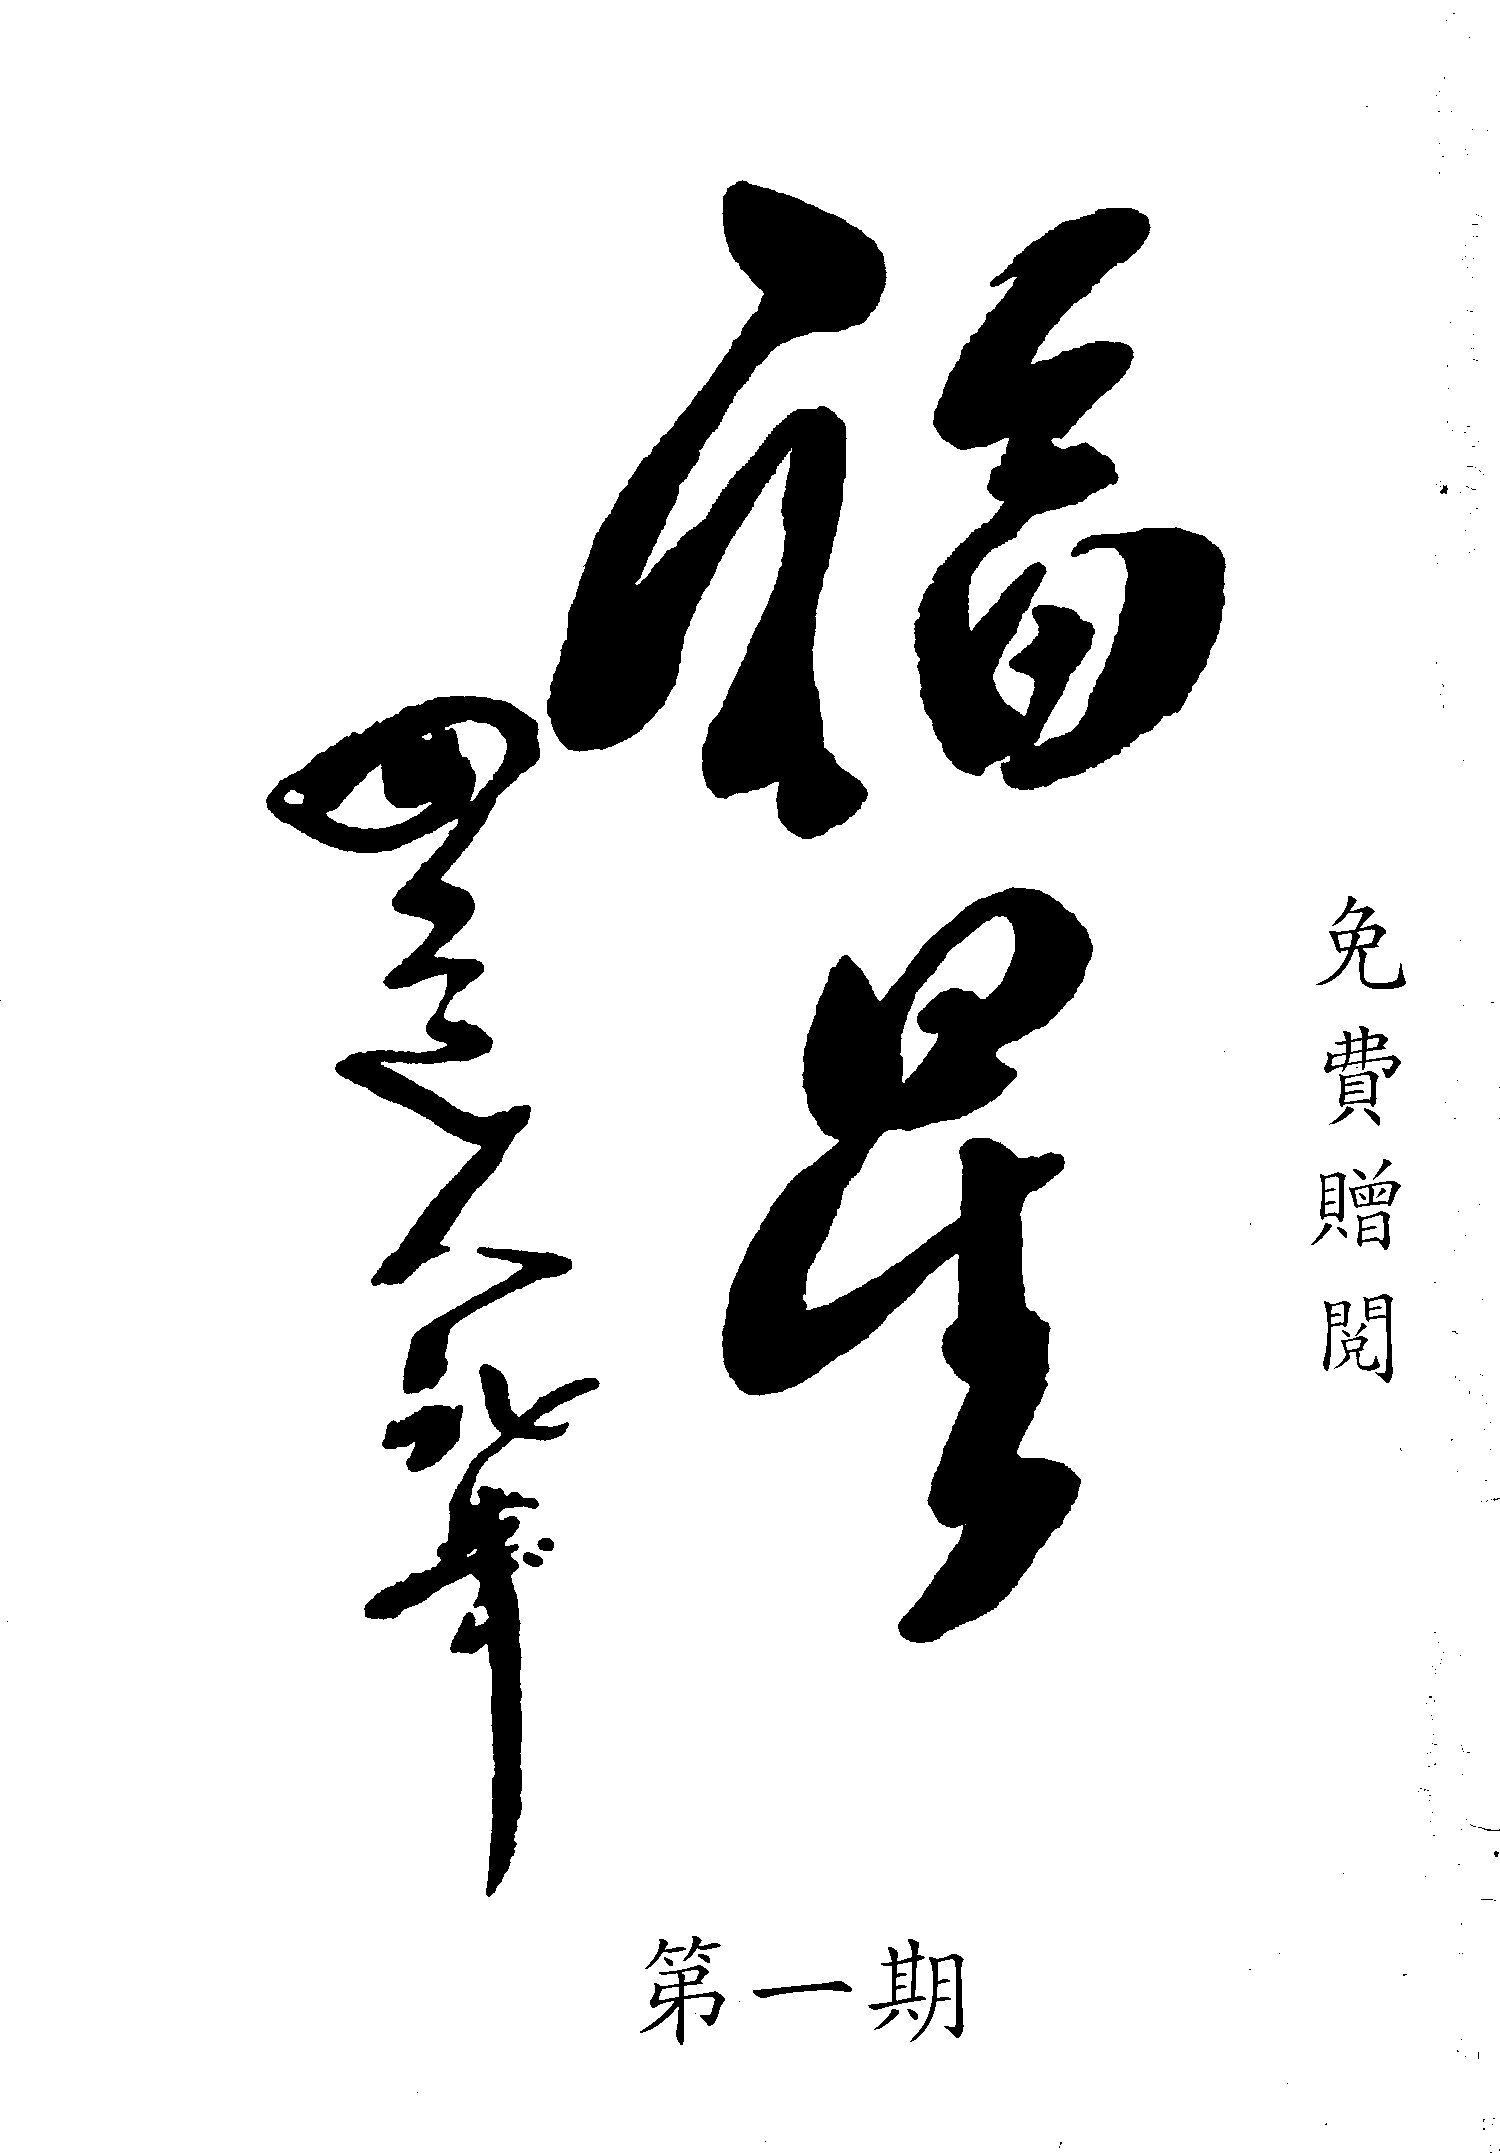 免費贈閱
福星
第一期